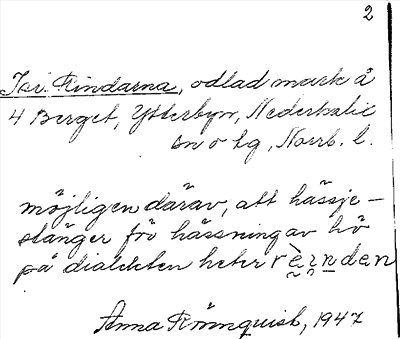 2
Isv. Rindarna, odlad mark å
4 Berget, Ytterbyn, Nederkalix
sn o tg, Norrb. l.
möjligen därav, att hässje-
stänger för hässning av hö
på dialekten heter rèinden
Anna Rönnquist, 1947